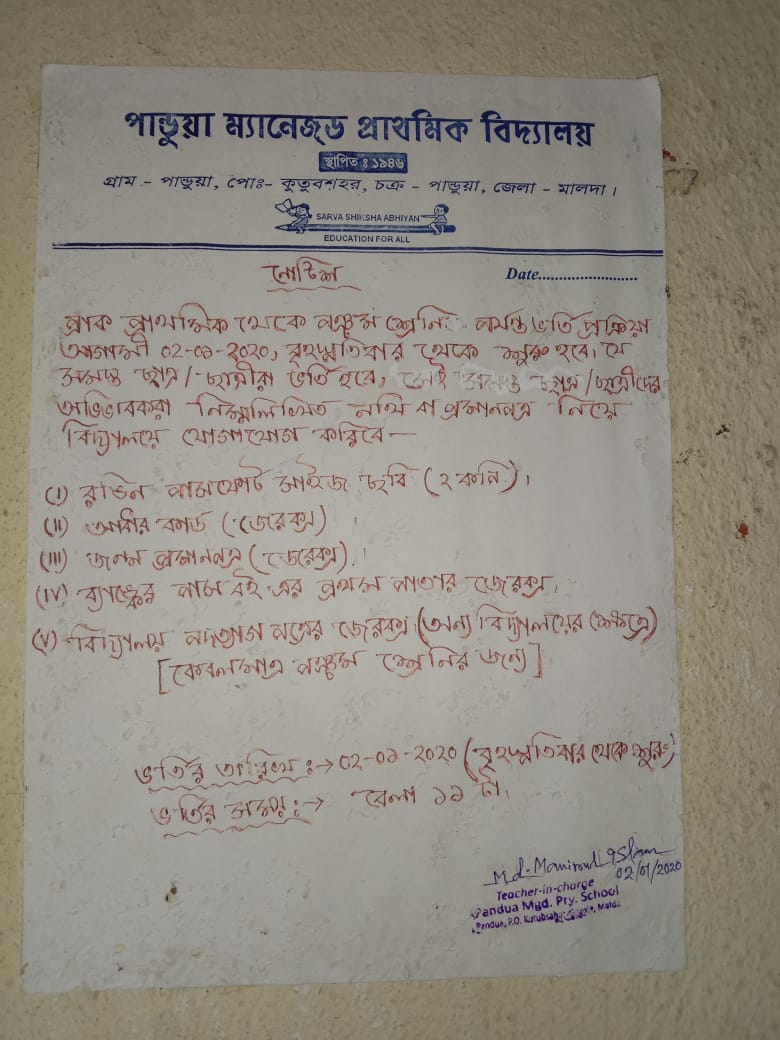 পান্ডুয়া ম্যানেজড প্রাথমিক বিদ্যালয়
স্থাপিত : ১৯৪৬
গ্রাম - পান্ডুয়া, পোঃ- কুতুবশহর, চক্র - পান্ডুয়া, জেলা - মালদা।
SARVA SHIKSHA ABHIYAN
EDUCATION FOR ALL
নোটিশ
Date.......................
প্রাক প্রাথমিক থেকে পঞ্চম শ্রেনি পর্যন্ত ভর্তি প্রক্রিয়া
আগামী ০২-০১-২০২০, বৃহস্পতিবার থেকে শুরু হবে। যে
সমস্ত ছাত্র/ছাত্রীরা ভর্তি হবে, সেই সমস্ত ছাত্র/ছাত্রীদের
অভিভাবকরা নিম্নলিখিত নথি বা প্রমানপত্র নিয়ে
বিদ্যালয়ে যোগাযোগ করিবে —
(I) রঙিন পাসফোর্ট সাইজ ছবি (২ কপি)।
(II) আধার কার্ড (জেরক্স)
(III) জন্ম প্রমানপত্র (জেরক্স)।
(IV) ব্যাঙ্কের পাস বই এর প্রথম পাতার জেরক্স।
(V) বিদ্যালয় পদত্যাগ পত্রের জেরক্স (অন্য বিদ্যালয়ের ক্ষেত্রে)
[কেবলমাত্র পঞ্চম শ্রেনির জন্য]
ভর্তির তারিখ :→ ০২-০১-২০২০ (বৃহস্পতিবার থেকে শুরু)
ভর্তির সময় :→ বেলা ১১ টা।
Md. Manirul Islam
02/01/2020
Teacher-in-charge
Pandua Mgd. Pry. School
Pandua, P.O. Kutubsahar, Malda